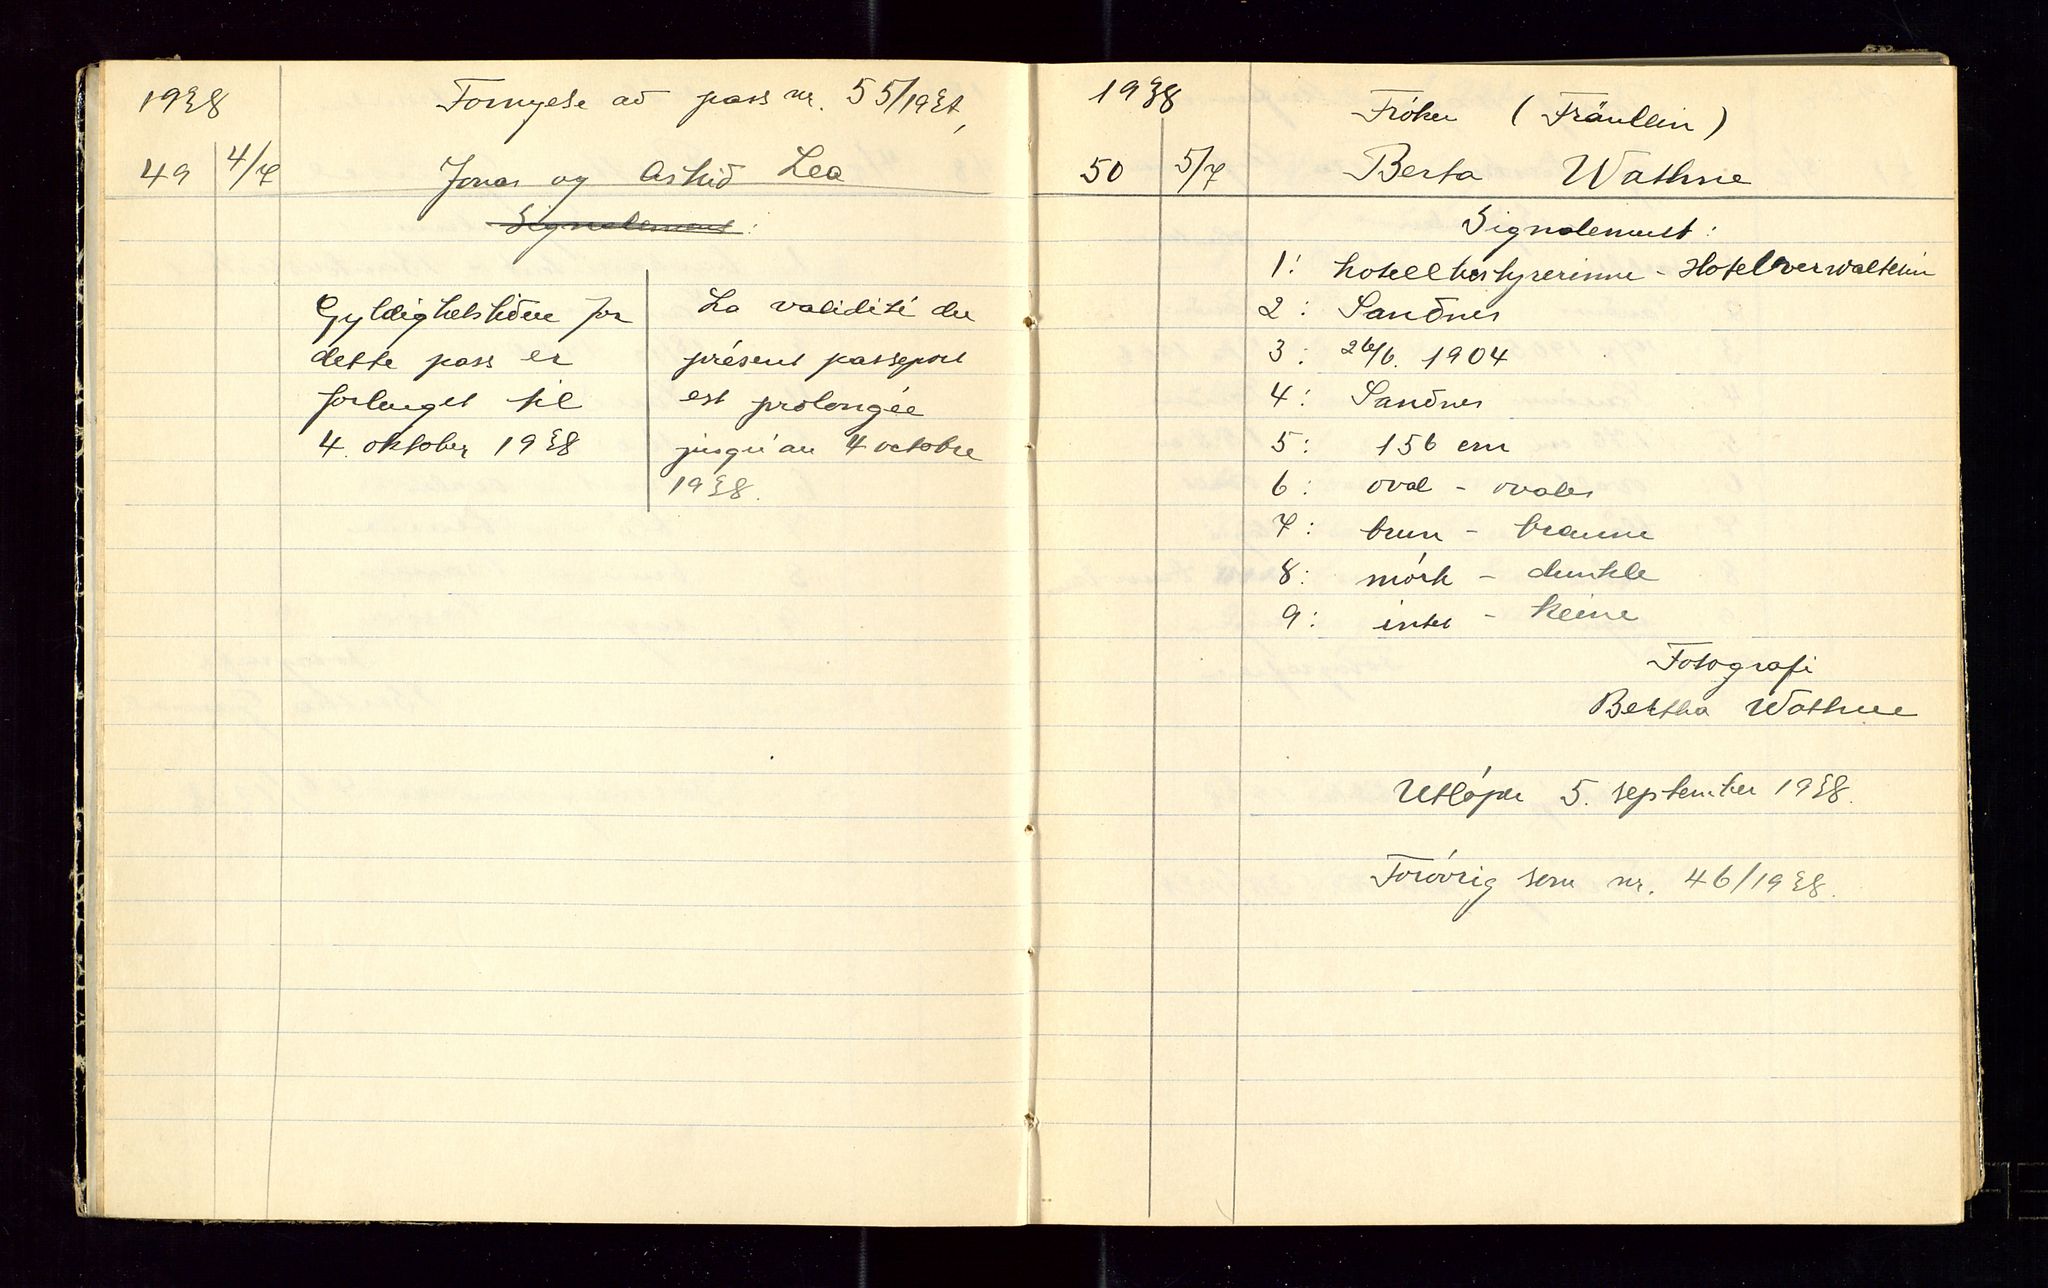 1938
Fornyelse av pass nr. 55/1937,
49 4/7 Jonas og Astrid Lea
Signalement:
Gyldighetstiden for
dette pass er
forlenget til
4. oktober 1938
La validité du
présent passeport
est prolongée
jusqu'au 4 octobre
1938.
1938
Frøken (Fräulein)
50 5/7 Berta Wathne
Signalement:
1: hotellbestyrerinne - Hotelverwalterin
2: Sandnes
3: 26/6. 1904
4: Sandnes
5: 156 cm
6: oval - ovales
7: brun - braune
8: mörk - dunkle
9: intet - keine
Fotografi
Bertha Wathne
Utløper 5. september 1938.
Forøvrig som nr. 46/1938.